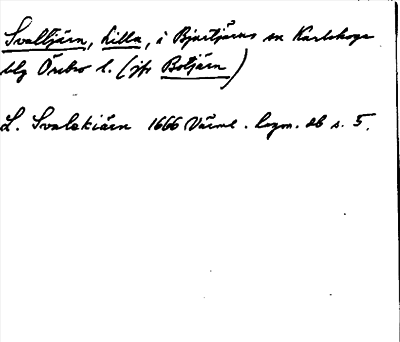 Svalltjärn, Lilla, i Bjurtjärns sn Karlskoga
blg Örebro l. (jfr Boltjärn)
L. Svalskiärn 1666 Värml. lregn. ab s. 5.